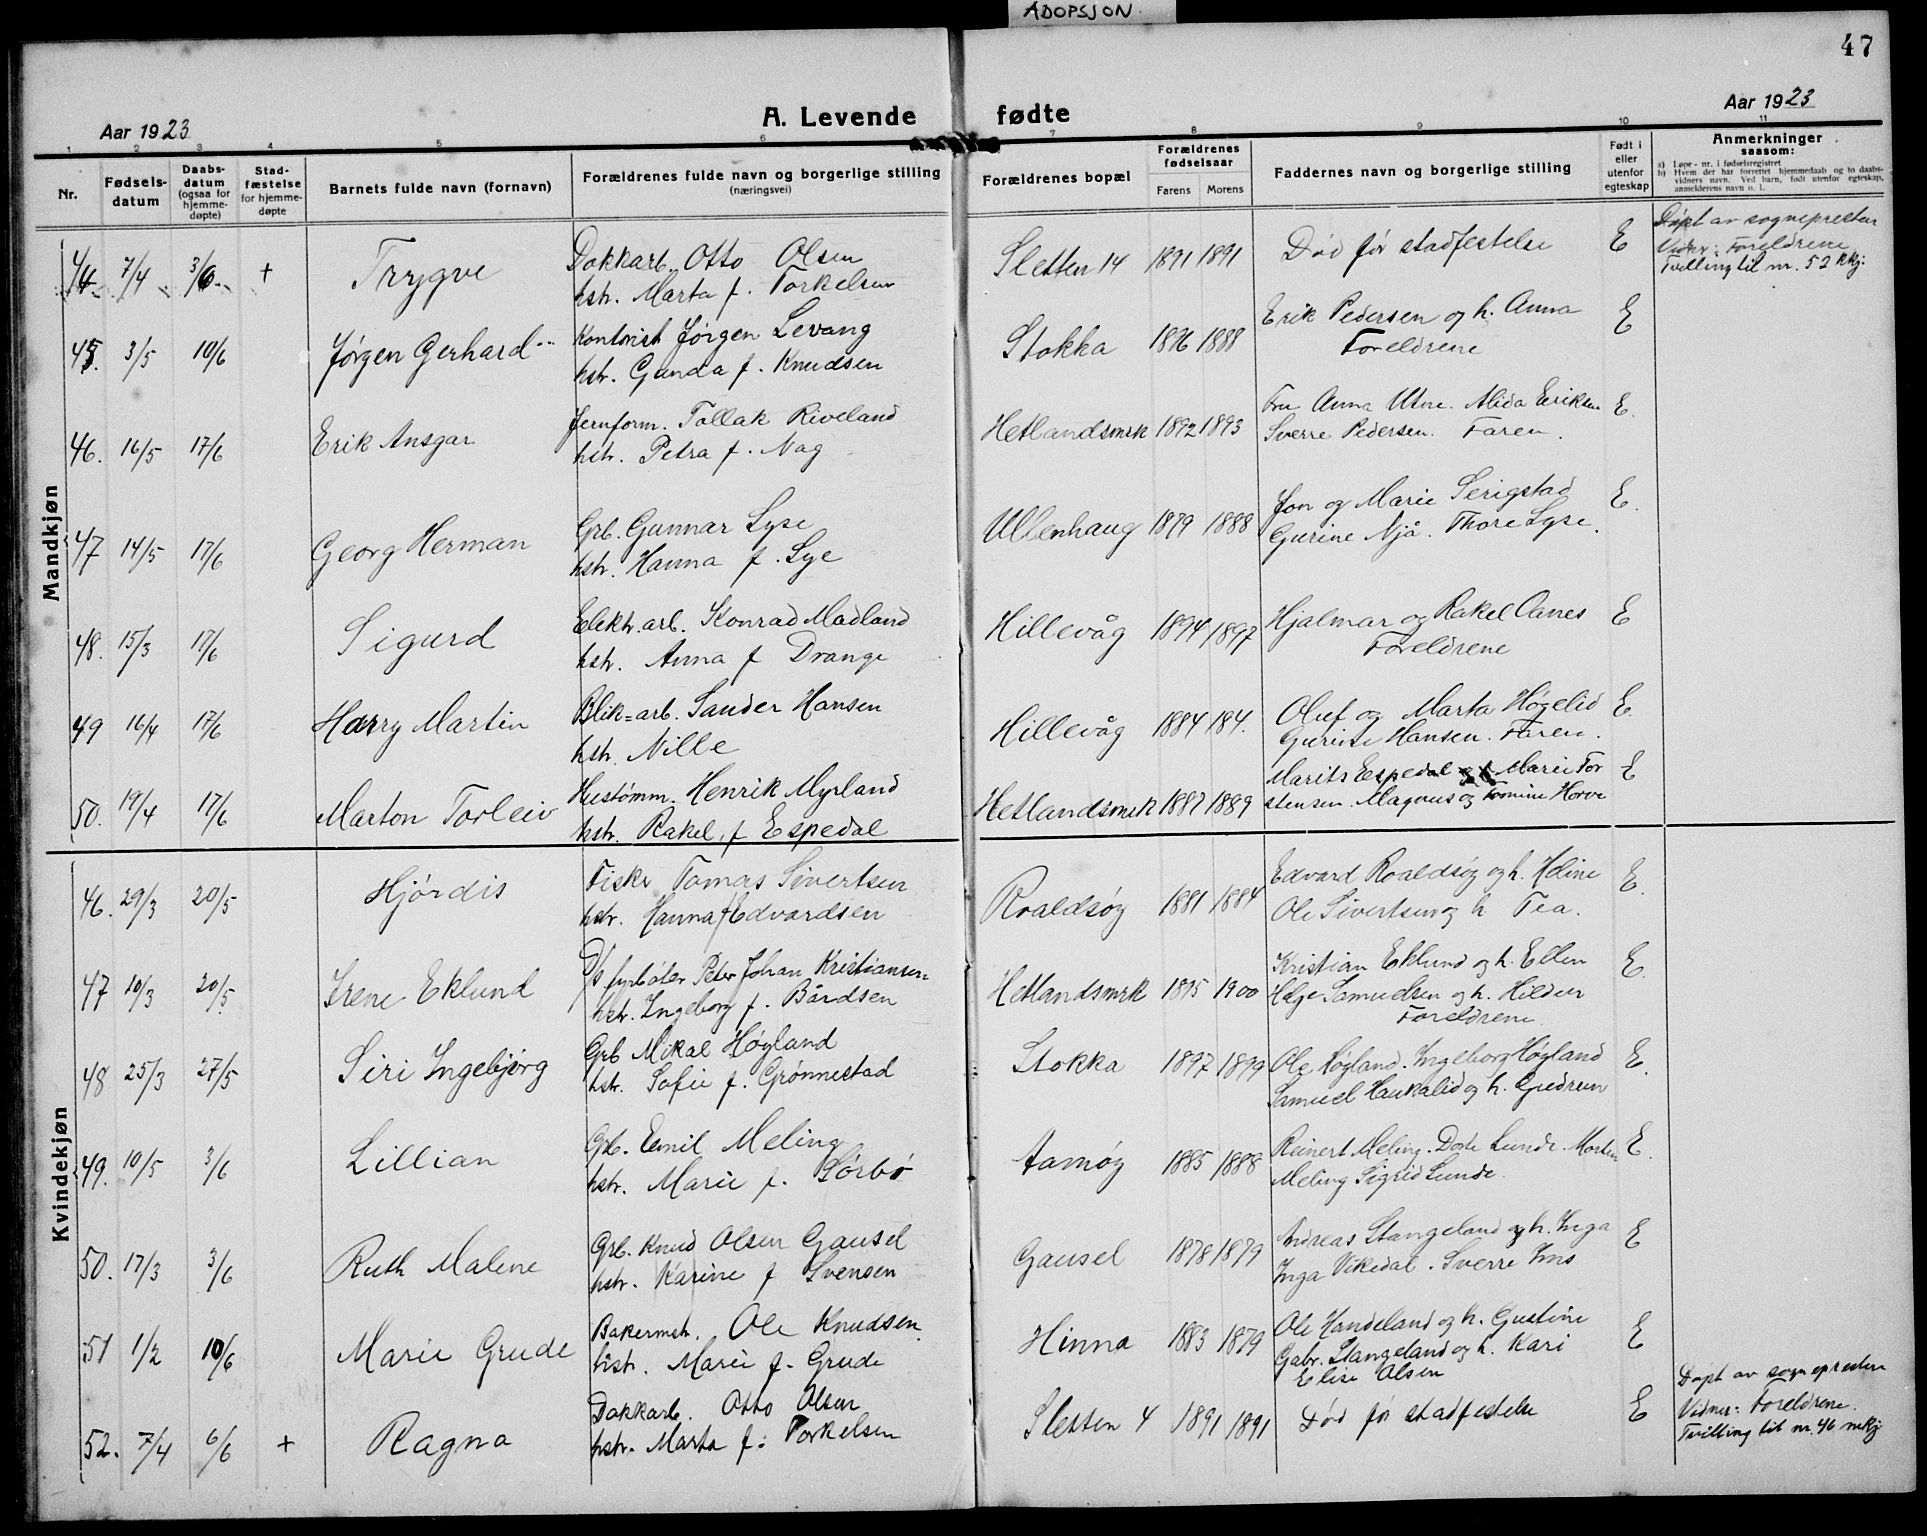 ADOPSJON
47
Aar 1923
A. Levende fødte
Aar 1923
1 2 3 4 5 6 7 8 9 10 11
Nr.
Fødsels-
datum
Daabs-
datum
(ogsaa for
hjemme-
døpte)
Stad-
fæstelse
for hjemme-
døpte
Barnets fulde navn (fornavn)
Forældrenes fulde navn og borgerlige stilling
(næringsvei)
Forældrenes bopæl
Forældrenes
fødselsaar
Farens Morens
Faddernes navn og borgerlige stilling
Født i
eller
utenfor
egteskap
Anmerkninger
saasom:
a) Løpe-nr. i fødselsregistret
b) Hvem der har forrettet hjemmedaab og to daabs-
vidners navn. Ved barn, født utenfor egteskap,
anmelderens navn o. l.
Mandkjøn
44. 7/4 3/6 + Trygve
Dokkarb. Otto Olsen
hstr. Marta f. Torkelsen
Sletten 14 1891 1891 Død før stadfestelse E
Døpt av sognepresten
Vidner: Foreldrene
Tvilling til nr. 52 kkj.
45. 3/5 10/6 Jørgen Gerhard
Kontorist Jørgen Levang
hstr. Gunda f. Knudsen
Stokka 1886 1888
Erik Pedersen og h. Anna E
Foreldrene
46. 16/5 17/6 Erik Ansgar
Jernform. Tollak Riveland
hstr. Petra f. Nag
Hetlandsmrk 1892 1893
Fru Anna Utne. Alida Eriksen E.
Sverre Pedersen. Faren.
47 14/5 17/6 Georg Herman
Grb. Gunnar Lyse
hstr. Hanna f. Lye
Ullenhaug 1879 1888
Jon og Marie Serigstad E.
Gurine Njå. Thore Lyse.
48. 15/3 17/6 Sigurd
Elektr.arb. Konrad Madland
hstr. Anna f Drange
Hillevåg 1894 1897
Hjalmar og Rakel Aanes E
Foreldrene
49 16/4 17/6 Harry Martin
Blik=arb. Sander Hansen
hstr. Nille
Hillevåg 1884 184.
Oluf og Marta Høgelid E.
Gurine Hansen. Faren.
50. 19/4 17/6 Marton Torleiv
Hustømm. Henrik Myrland
hstr. Rakel f Espedal
Hetlandsmrk 1887 1889
Marits Espedal Marie Tor E
stensen Magnus og Tomine Horve
Kvindekjøn
46. 29/3 20/5 Hjørdis
Fisker Tomas Sivertsen
hstr. Hanna f Edvardsen
Roaldsøy 1881 1884
Edvard Roaldsøy og h. Heline E.
Ole Sivertsen og h Tea.
47 10/3 20/5 Irene Eklund
D/s fyrbøter Peter Johan Kristiansen
hstr. Ingeborg f. Bårdsen
Hetlandsmrk 1895 1900
Kristian Eklund og h. Ellen E.
Helge Samuelsen og h. Hildur
Foreldrene
48 25/3 27/5 Siri Ingebjørg
Grb Mikal Høyland
hstr. Sofie f. Grønnestad
Stokka 1897 1899
Ole Høyland. Ingeborg Høyland E.
Samuel Haukalid og h. Gudrun
49. 10/5 3/6 Lillian
Grb. Emil Meling
hstr. Marie f. Sørbø
Aamøy 1885 1888
Reinert Meling. Dorte Lunde. Morten E.
Meling Sigrid Lunde.
50. 17/3 3/6 Ruth Malene
Grb. Knud Olsen Gausel
hstr. Karine f Svensen
Gausel 1878 1879
Andreas Stangeland og h. Inga E
Inga Vikedal. Sverre Ims
51 1/2 10/6 Marie Grude
Bakermstr. Ole Knudsen
hstr. Marie f. Grude
Hinna 1883 1879
Ole Handeland og h. Gustine E
Gabr. Stangeland og h. Kari
Elise Olsen
52. 7/4 6/6 + Ragna
Dokkarb. Otto Olsen
hstr. Marta f. Torkelsen
Sletten 4 1891 1891 Død før stadfestelse E
Døpt av sognepresten
Vidner: Foreldrene.
Tvilling til nr. 46 mkj